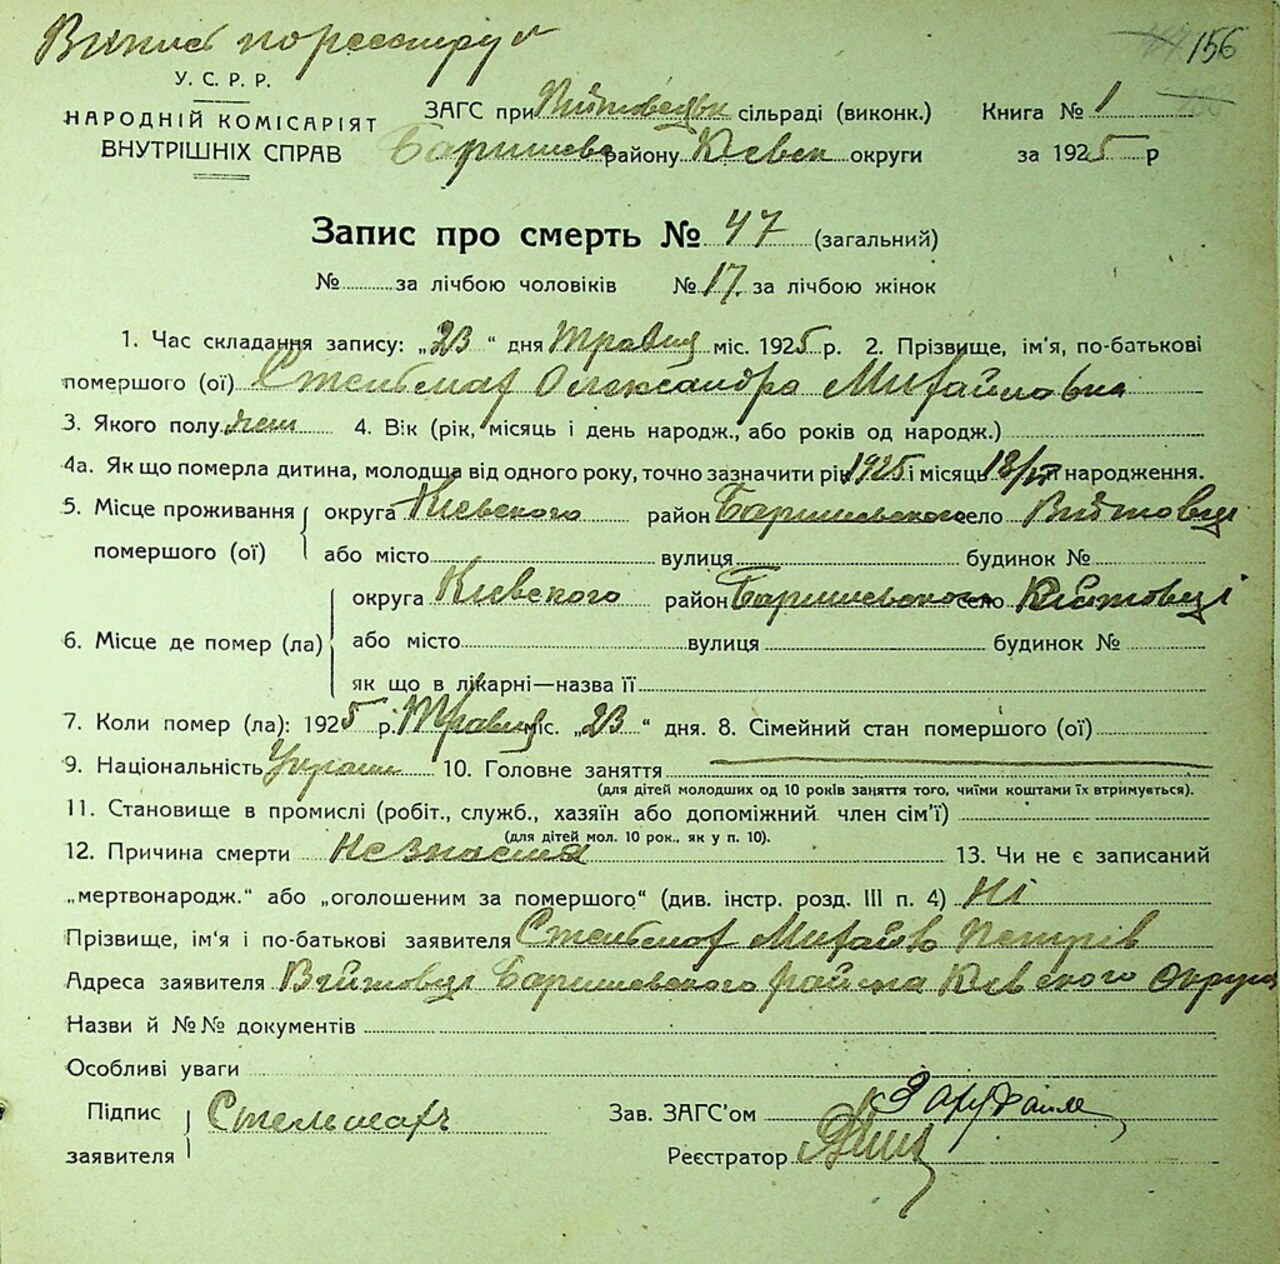 156
У. С. Р. Р.
НАРОДНІЙ КОМІСАРІЯТ
ВНУТРІШНІХ СПРАВ
ЗАГС при Війтовецьк сільраді (виконк.)
Баришевс району Київськ округи
Книга № 1
за 1925 р
Запис про смерть № 47 (загальний)
№ за лічбою чоловіків № 17. за лічбою жінок
1. Час складання запису: „23“ дня Травня міс. 1925 р. 2. Прізвище, ім'я, по-батькові
помершого (ої) Стельмах Олександра Михайловна
3. Якого полу жен 4. Вік (рік, місяць і день народж., або років од народж.)
4а. Як що померла дитина, молодща від одного року, точно зазначити рік 1925 і місяць народження.
5. Місце проживання помершого (ої) округа Киевского район Баришевського село Війтовці
або місто вулиця будинок №
6. Місце де помер (ла) округа Киевского район Баришевського село Війтовці
або місто вулиця будинок №
як що в лікарні—назва її
7. Коли помер (ла): 1925 р. Травня міс. „23“ дня. 8. Сімейний стан помершого (ої)
9. Національність Україн 10. Головне заняття
(для дітей молодших од 10 років заняття того, чиїми коштами їх втримується).
11. Становище в промислі (робіт., служб., хазяїн або допоміжний член сім'ї)
(для дітей мол. 10 рок., як у п. 10).
12. Причина смерти Незнаєма 13. Чи не є записаний
„мертвонародж.“ або „оголошеним за помершого“ (див. інстр. розд. III п. 4) Ні
Прізвище, ім'я і по-батькові заявителя Стельмах Михайло Петрів
Адреса заявителя Війтовці Баришевского района Киевского Округа
Назви й №№ документів
Особливі уваги
Підпис заявителя Стельмахъ
Зав. ЗАГС'ом
Реєстратор